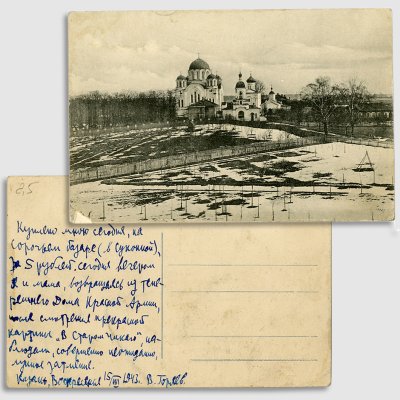 25
Куплено мною сегодня, на
Сорочьем базаре (в Суконной),
за 5 рублей. Сегодня вечером
я и мама, возвращаясь из тепе-
решнего Дома Красной Армии,
после смотрения прекрасной
картины "В старом Чикаго", на-
блюдали, совершенно неожиданно,
лунное затмение.
Казань, Воскресенье 15/VIII 1943. В.